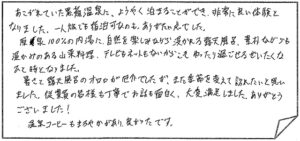 あこがれていた黒薙温泉に、ようやく泊まることができ、非常に良い体験と
なりました。一人旅でも宿泊可なのも、ありがたい点でした。
源泉100%の内湯に、自然を楽しみながら浸かれる露天風呂、素朴ながらも
温かみのある山菜料理、テレビもネットもないからこそ、ゆったり過ごせるぜいたくな
時となりました。
暑さで露天風呂のオロロが厄介でしたが、また季節を変えて訪れたいと思い
ました。従業員の皆様も丁寧でお話も面白く、大変満足しました。ありがとう
ございました!
源泉コーヒーもまろやかがあり、良かったです。